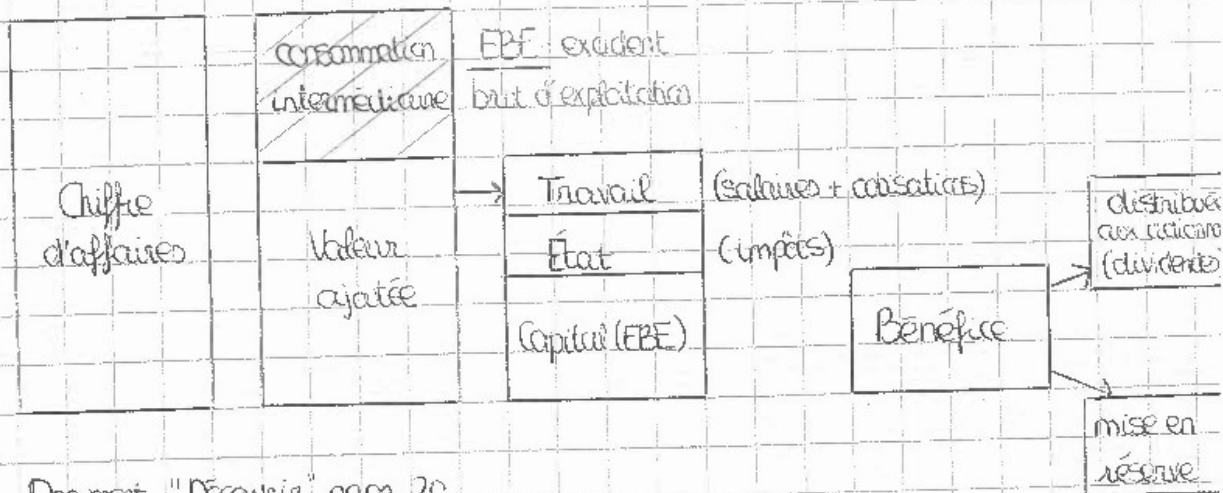 Chiffre
d'affaires
consommation
intermédiaire
Valeur
ajoutée
EBE : excédent
brut d'exploitation
Travail
(salaires + cotisations)
État
(impôts)
Capital (EBE)
Bénéfice
distribué
aux
(dividendes)
mise en
réserve
Document "Découvrir" page 20